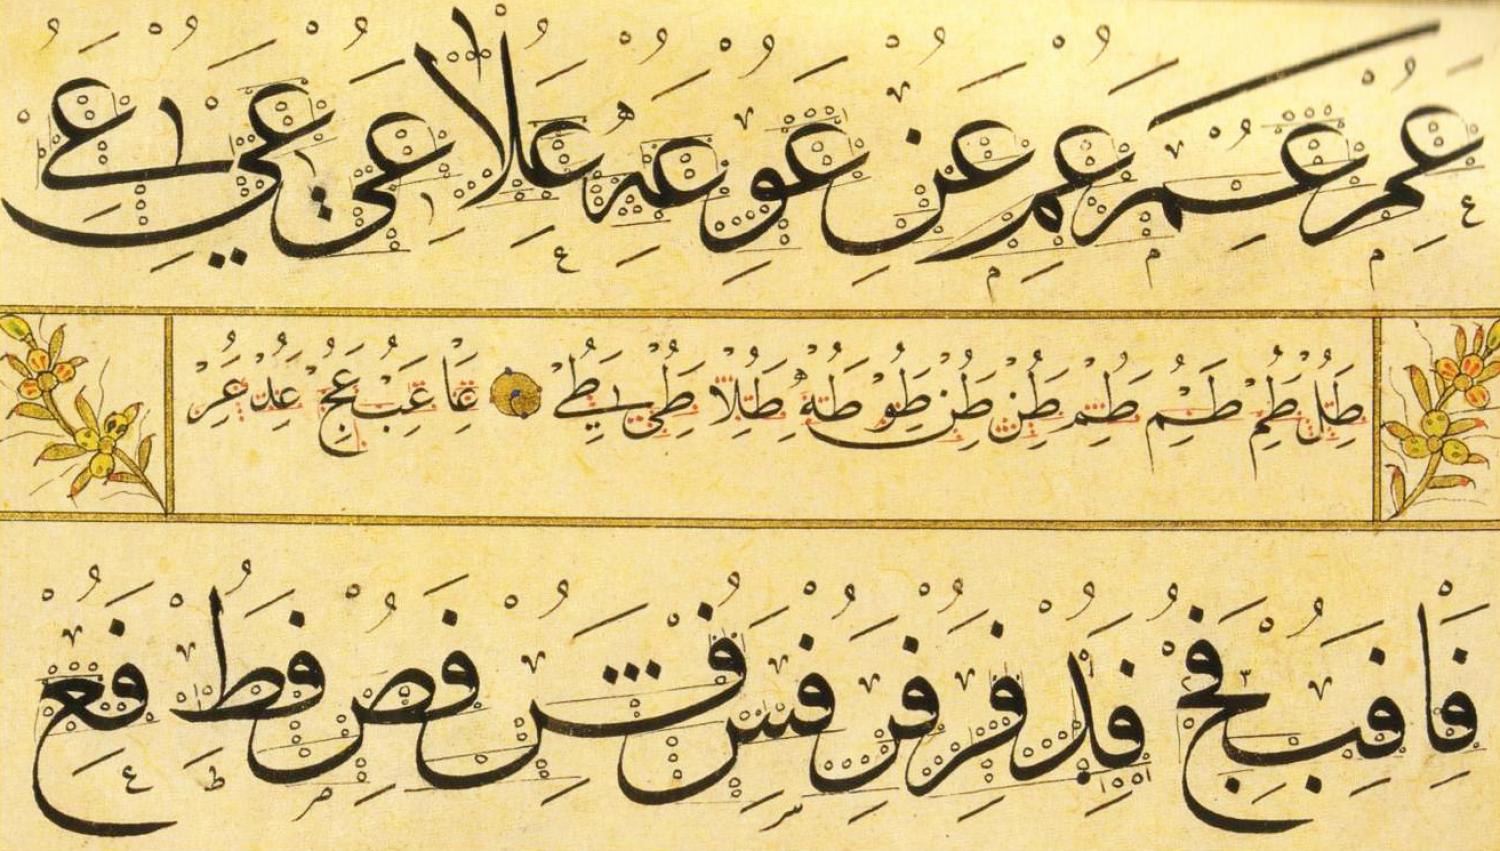 عم عم عم عن عو عه علا عي عي
طل طم طم طم طن طن طو طه طلا طي طي عا عب عج عد عر
فا فب فج فد فر فر فس فس فص فط فع